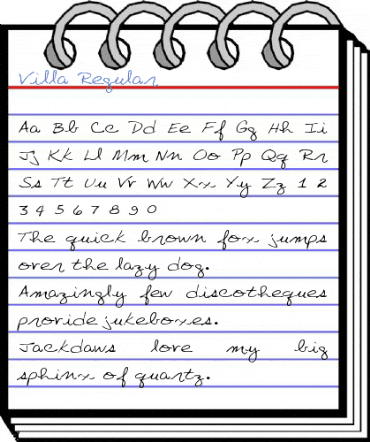 Villa Regular
Aa Bb Cc Dd Ee Ff Gg Hh Ii
Jj Kk Ll Mm Nn Oo Pp Qq Rr
Ss Tt Uu Vv Ww Xx Yy Zz 1 2
3 4 5 6 7 8 9 0
The quick brown fox jumps
over the lazy dog.
Amazingly few discotheques
provide jukeboxes.
Jackdaws love my big
sphinx of quartz.